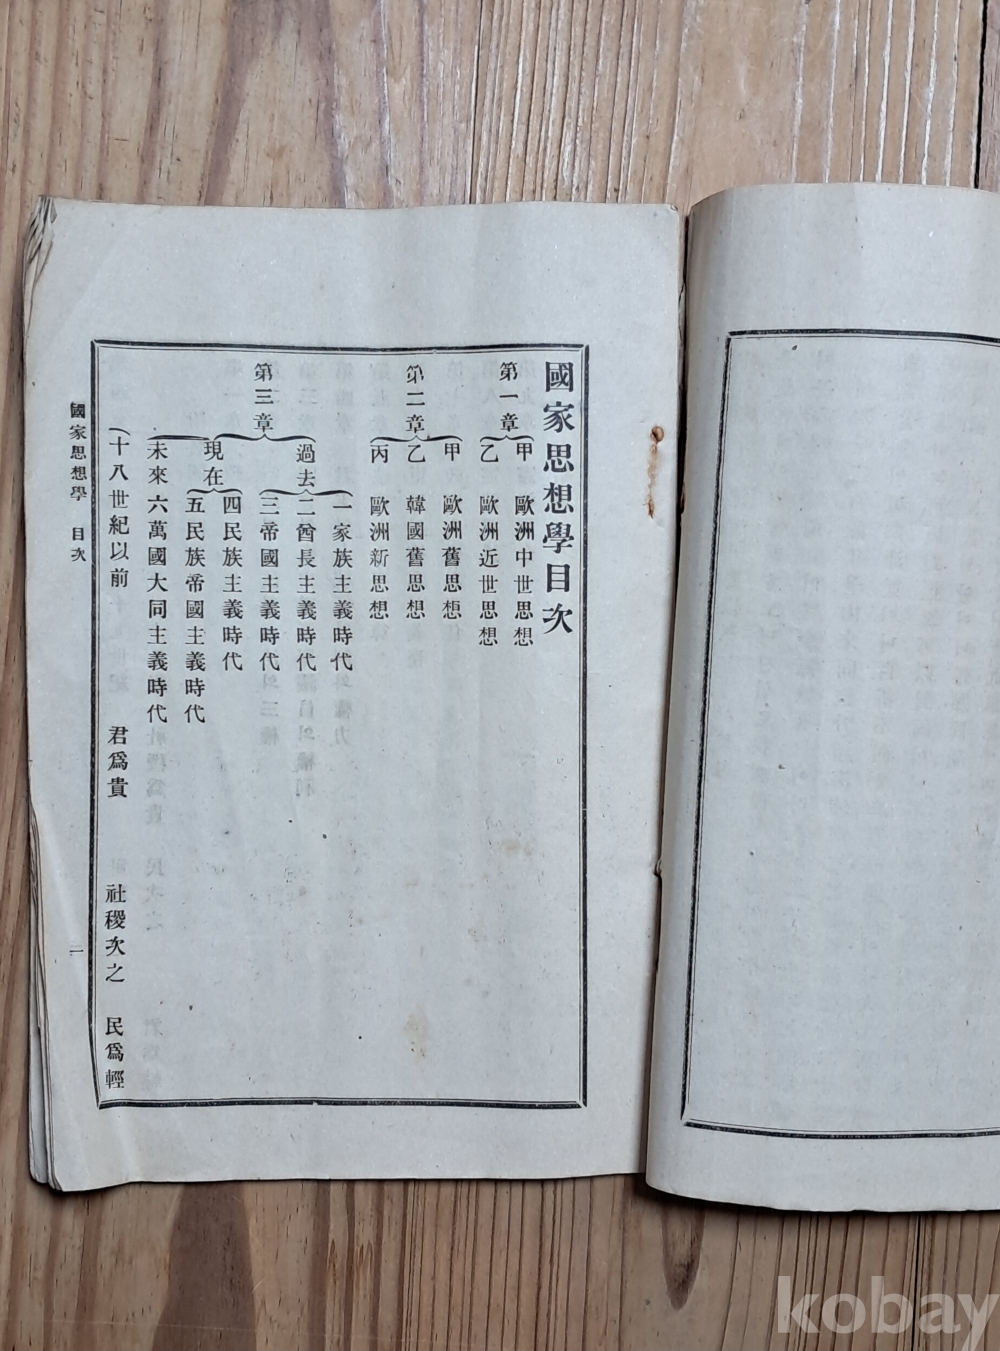 國家思想學目次
第一章
甲 歐洲中世思想
乙 歐洲近世思想
第二章
甲 歐洲舊思想
乙 韓國舊思想
丙 歐洲新思想
第三章
過去
一家族主義時代
二酋長主義時代
三帝國主義時代
現在
四民族主義時代
五民族帝國主義時代
未來 六萬國大同主義時代
(十八世紀以前 君爲貴 社稷次之 民爲輕
國家思想學 目次
kobay